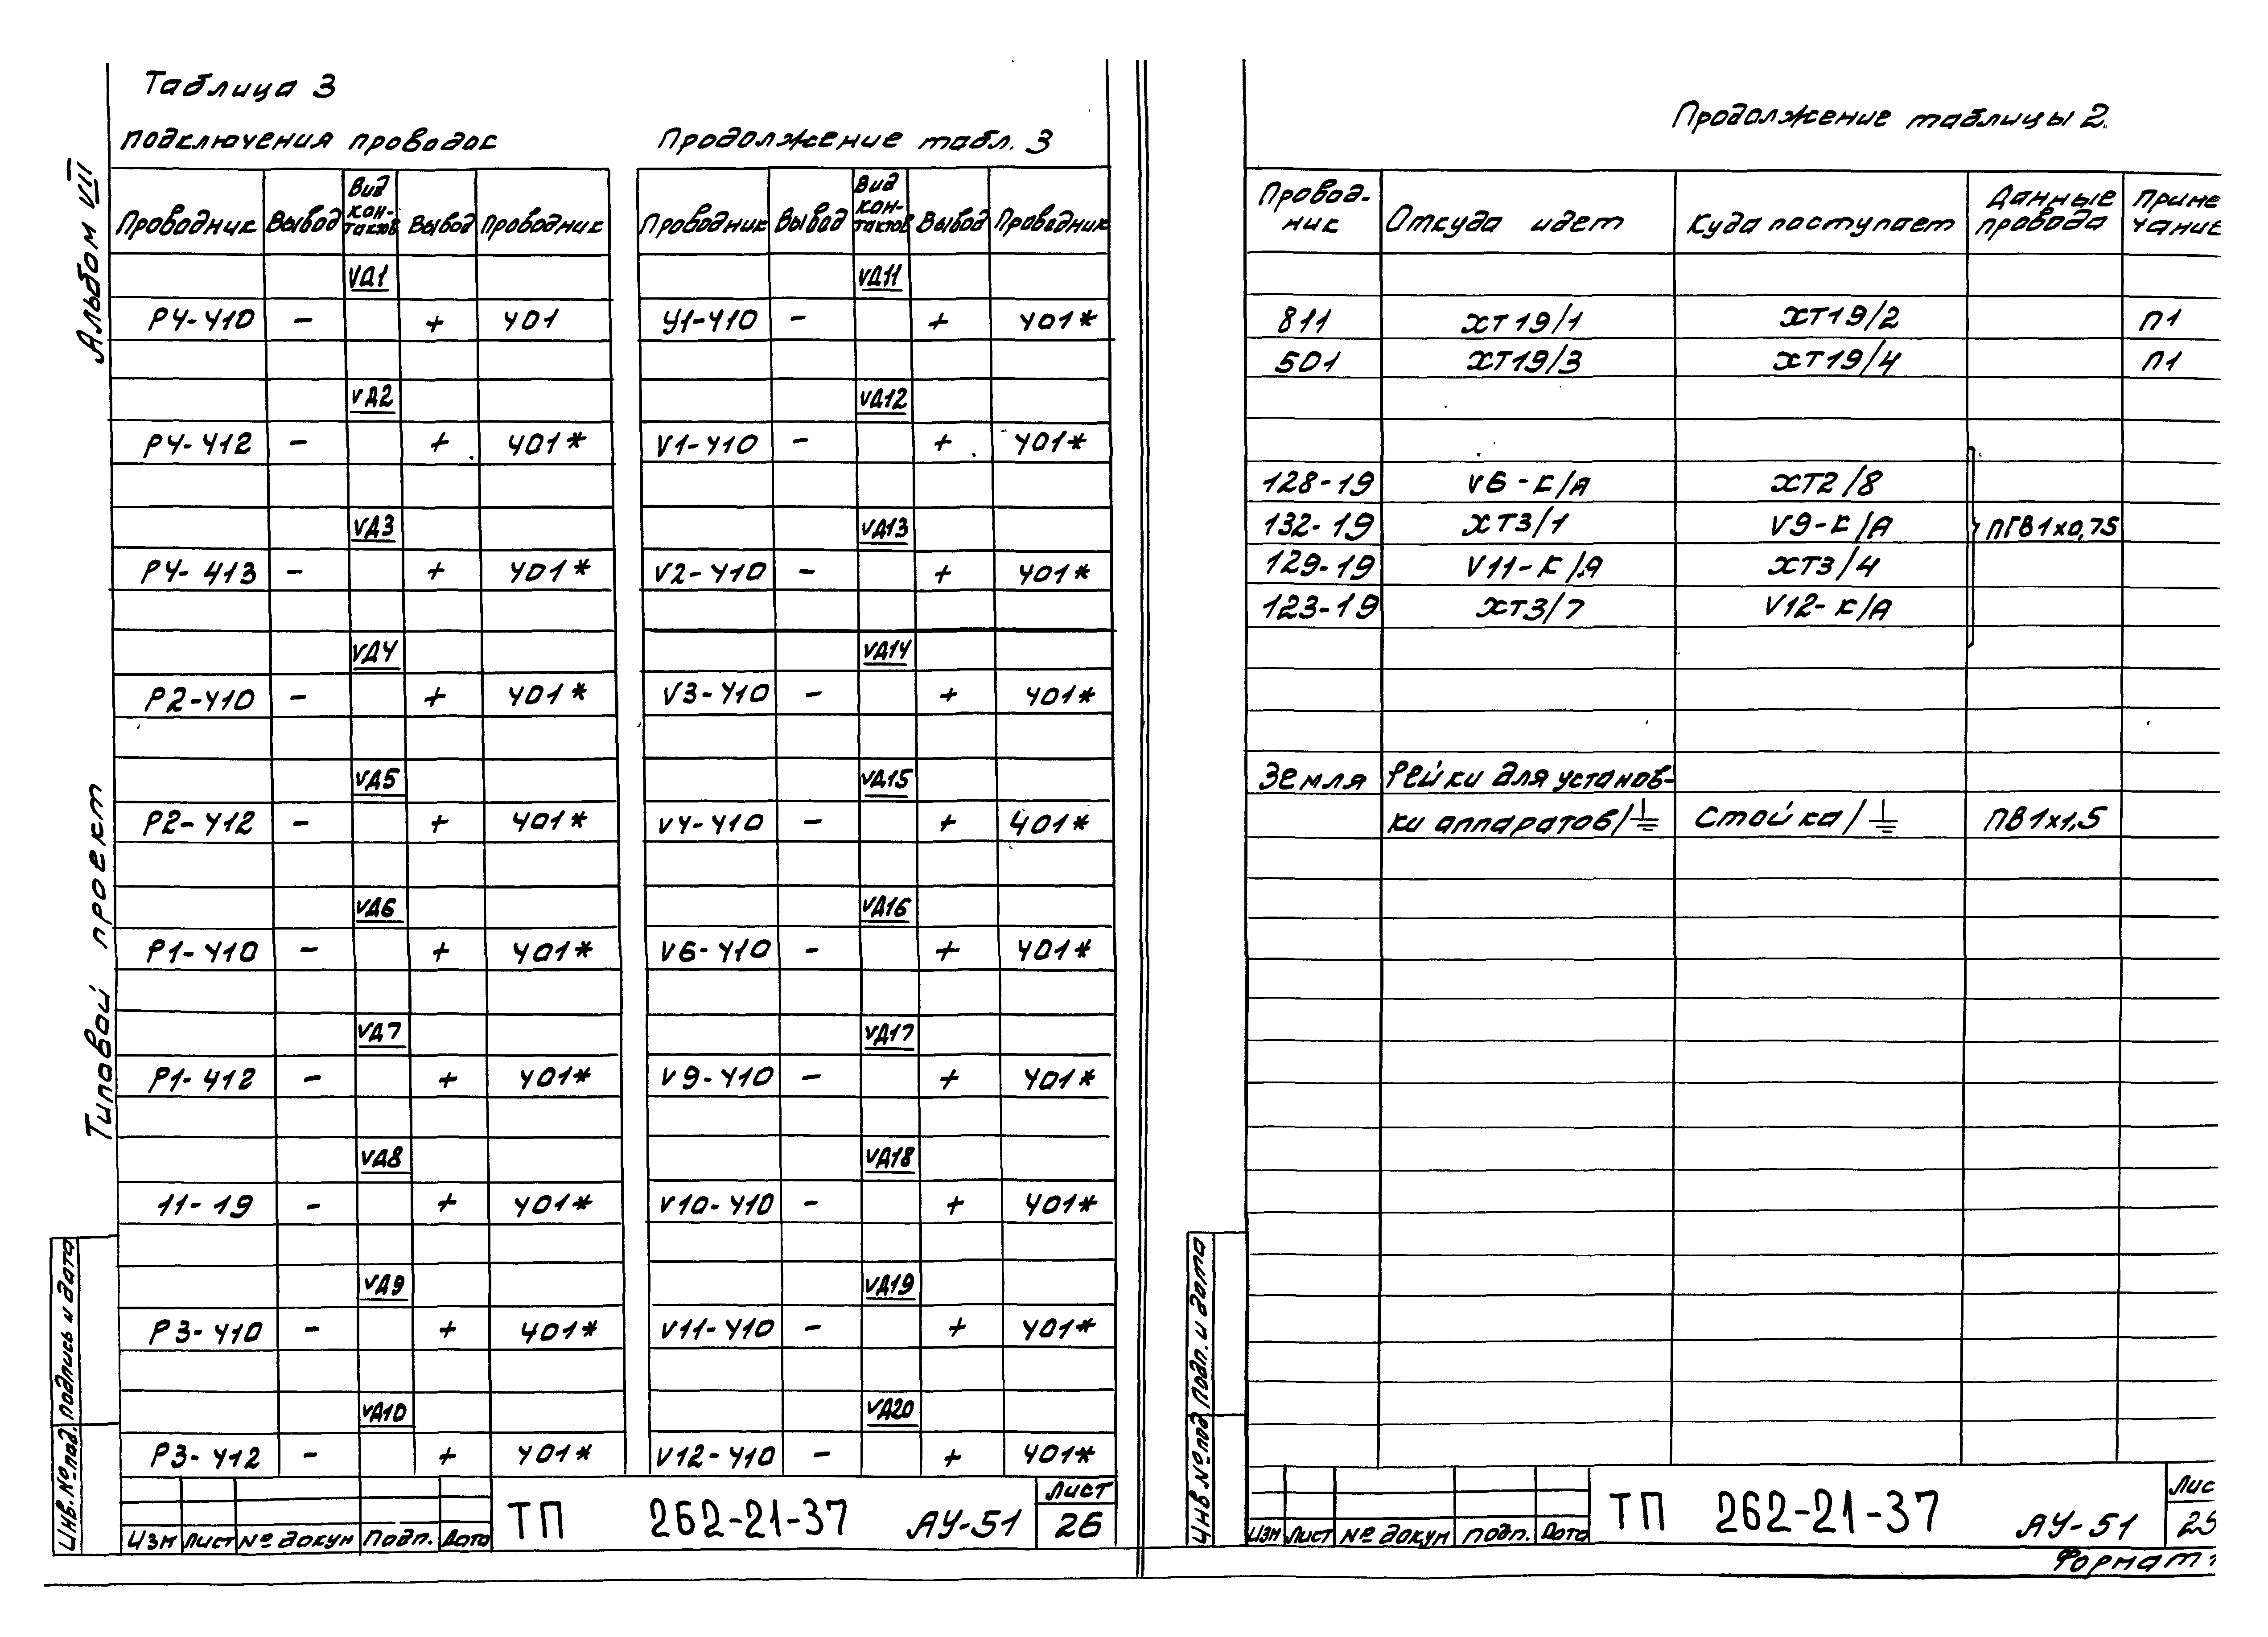 Альбом VII
Типовой проект
Таблица 3
подключения проводок
Проводник Вывод Вид кон-тактов Вывод Проводник
VД1
Р4-410 - + 401
VД2
Р4-412 - + 401*
VД3
Р4-413 - + 401*
VД4
Р2-410 - + 401*
VД5
Р2-412 - + 401*
VД6
Р1-410 - + 401*
VД7
Р1-412 - + 401*
VД8
11-19 - + 401*
VД9
Р3-410 - + 401*
VД10
Р3-412 - + 401*
Продолжение табл. 3
Проводник Вывод Вид кон-тактов Вывод Проводник
VД11
У1-410 - + 401*
VД12
V1-410 - + 401*
VД13
V2-410 - + 401*
VД14
V3-410 - + 401*
VД15
V4-410 - + 401*
VД16
V6-410 - + 401*
VД17
V9-410 - + 401*
VД18
V10-410 - + 401*
VД19
V11-410 - + 401*
VД20
V12-410 - + 401*
Инв.№под. подпись и дата
Изм Лист № докум Подп. Дата
ТП 262-21-37 АУ-51
Лист
26
Продолжение таблицы 2
Провод-ник Откуда идет Куда поступает Данные провода Приме чание
811 ХТ19/1 ХТ19/2 П1
501 ХТ19/3 ХТ19/4 П1
128-19 V6-К/А ХТ2/8
132-19 ХТ3/1 V9-К/А ПГВ1х0,75
129-19 V11-К/А ХТ3/4
123-19 ХТ3/7 V12-К/А
Земля Рейки для установ-
ки аппаратов/⏚ Стойка/⏚ ПВ1х1,5
Инв №под Подп. и дата
Изм Лист № докум подп. Дата
ТП 262-21-37 АУ-51
Лис
25
Формат